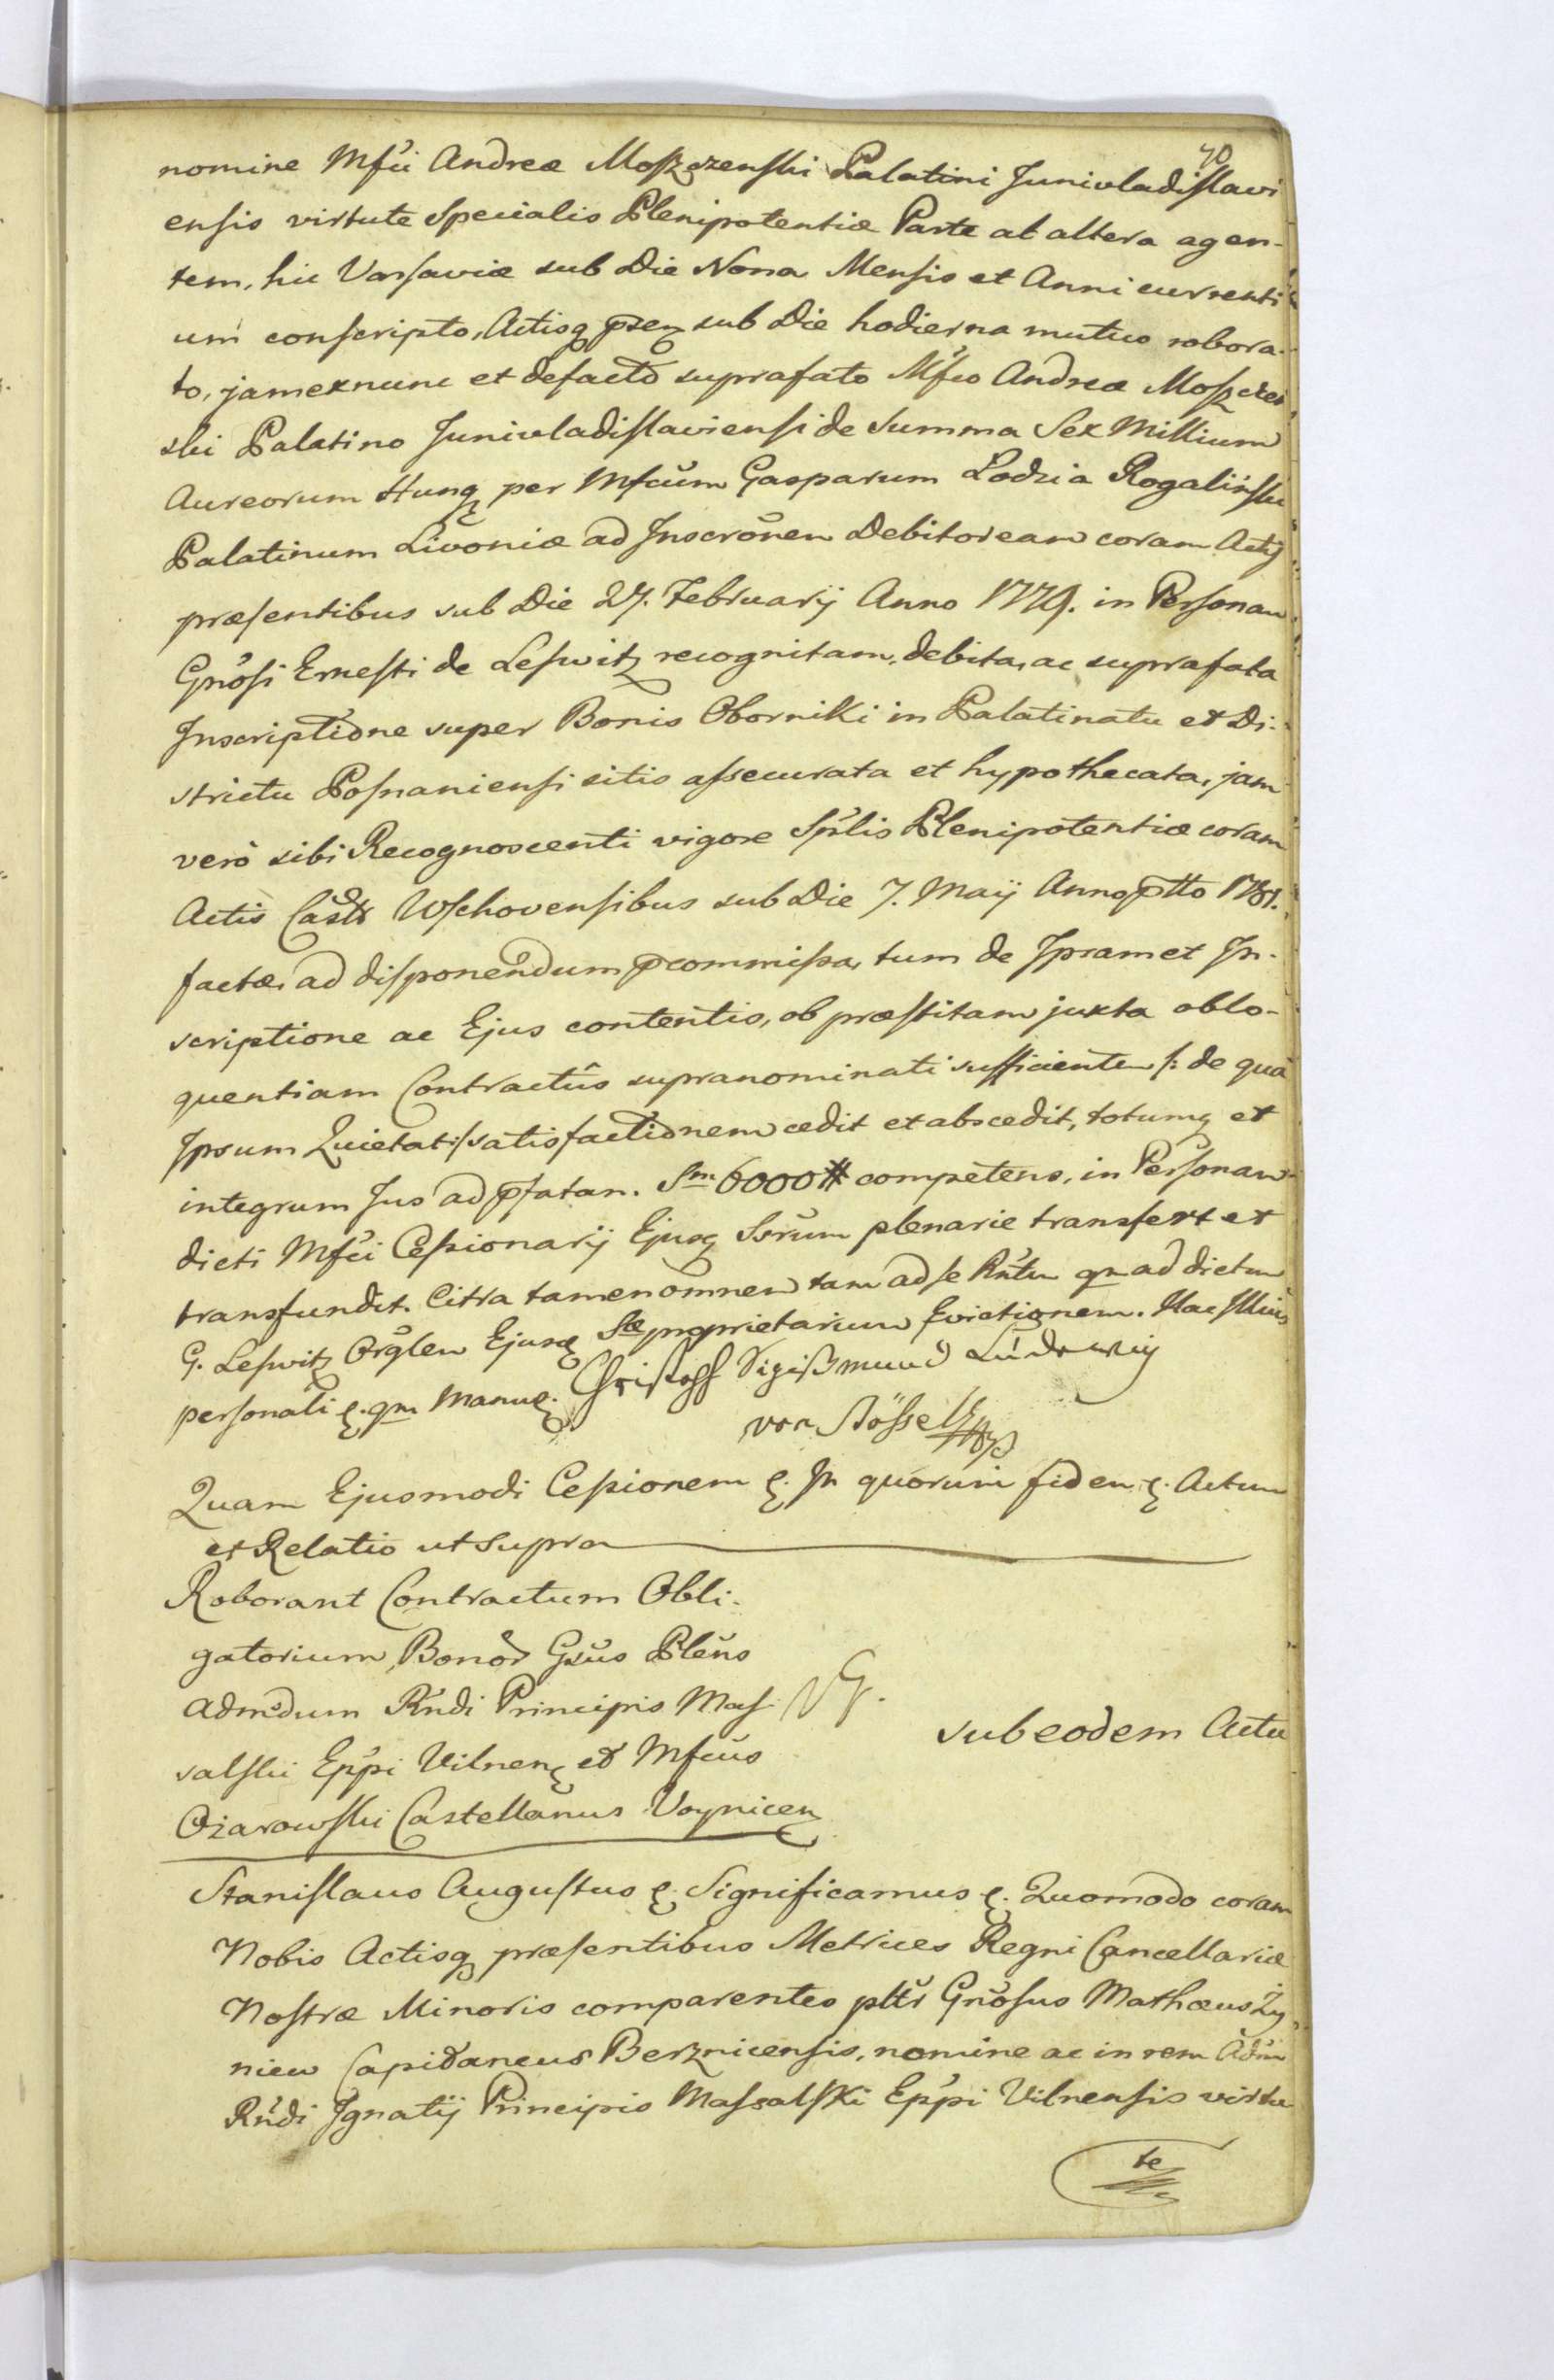 40
nomine Mfci Andreæ Moszczenski Palatini Junivladislavi
ensis virtute Specialis Plenipotentiæ Parte ab altera agen-
tem, hic Varsaviæ sub Die Nona Mensis et Anni currenti
um conscripto, Actisq pñs sub Die hodierna mutuo robora-
to, jamexnunc et defacto suprafato Mfco Andreæ Moszczen
ski Palatino Junivladislaviensi de Summa Sex Millium
Aureorum Hung per Mfcum Gasparum Lodzia Rogaliński
Palatinum Livoniæ ad Inscrōnem Debitoream coram Actis
præsentibus sub Die 27. Februarij Anno 1779. in Personam
Gnōsi Ernesti de Leswitz recognitam, debita, ac suprafata
Inscriptione super Bonis Oborniki in Palatinatu et Di-
strictu Posnaniensi sitis assecurata et hypothecata, jam
verò sibi Recognoscenti vigore Splis Plenipotentiæ coram
Actis Castr Wschovensibus sub Die 7. Maij Anno ptto 1781.
factæ, ad disponendum pcommissa, tum de Ipsamet In-
scriptione ac Ejus contentis, ob præstitam juxta oblo-
quentiam Contractûs supranominati sufficientem /: de quà
Ipsum Quietat :/ satisfactionem cedit et abscedit, totumq et
integrum Jus ad pfatam. Sm 6000 # competens, in Personam
dicti Mfci Cessionarij Ejusq Ssrum plenarie transfert et
transfundit. Citra tamen omnem tam ad se Rntem qm ad dictum
G. Leswitz Orglem Ejusq Sæ proprietarium Evictionem. Hac Illius
personali &. qm Manu &. Christoff Sigißmund Ludewig
von Stössel
Quam Ejusmodi Cessionem &. In quorum fidem &. Actum
et Relatio ut Supra
Roborant Contractum Obli-
gatorium Bonor Gsus Plēns
Admōdum Rndi Principis Mas
salski Eppi Vilnen et Mfcus
Ożarowski Castellanus Voynicen
sub eodem Actu
Stanislaus Augustus &. Significamus &. Quomodo coram
Nobis Actisq præsentibus Metrices Regni Cancellariæ
Nostræ Minoris comparentes pltr Gnōsus Mathæus Ży
niew Capitaneus Berznicensis, nomine ac in rem Adm
Rndi Ignatij Principis Massalski Eppi Vilnensis virtu
te